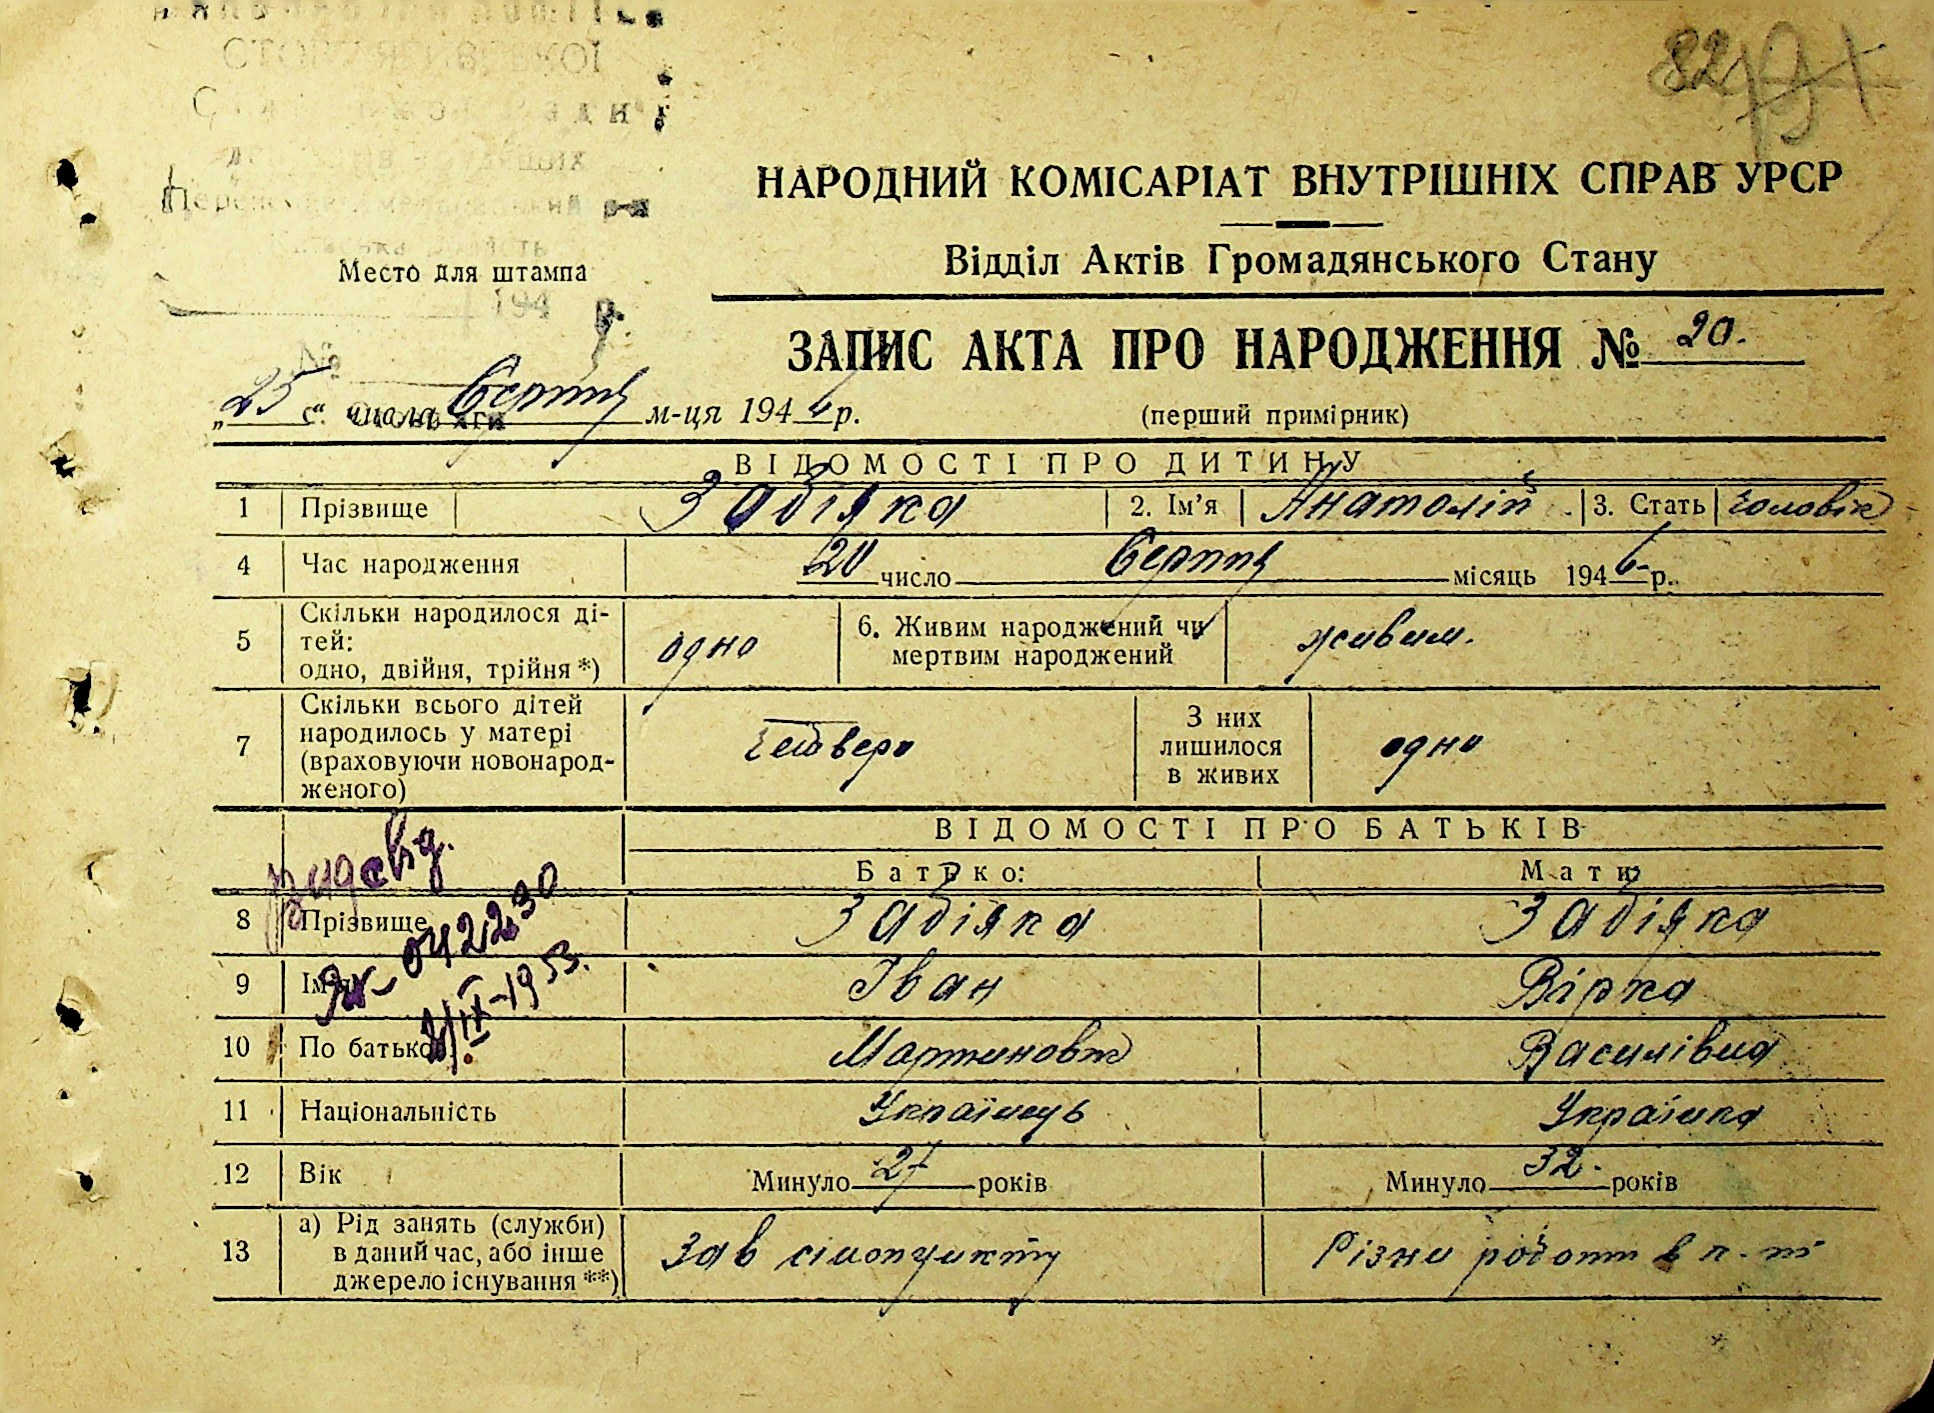 82
НАРОДНИЙ КОМІСАРІАТ ВНУТРІШНІХ СПРАВ УРСР
Відділ Актів Громадянського Стану
Место для штампа
194 р.
№
ЗАПИС АКТА ПРО НАРОДЖЕННЯ № 20.
„25“ числа Серпня м-ця 1946 р.
(перший примірник)
ВІДОМОСТІ ПРО ДИТИНУ
1 Прізвище Забіяка 2. Ім'я Анатолій 3. Стать чоловіч
4 Час народження 20 число Серпня місяць 1946 р.
5 Скільки народилося ді-
тей:
одно, двійня, трійня *) одно 6. Живим народжений чи
мертвим народжений живим.
7 Скільки всього дітей
народилось у матері
(враховуючи новонарод-
женого) четверо З них
лишилося
в живих одно
ВІДОМОСТІ ПРО БАТЬКІВ
Батько: Мати:
8 Прізвище Забіяка Забіяка
9 Ім'я Іван Вірка
10 По батькові Мартинович Василівна
11 Національність Українець Українка
12 Вік Минуло 27 років Минуло 32 років
13 а) Рід занять (служби)
в даний час, або інше
джерело існування **) Зав сінопункту Різни роботи в к-ті
042230
IX-1953.